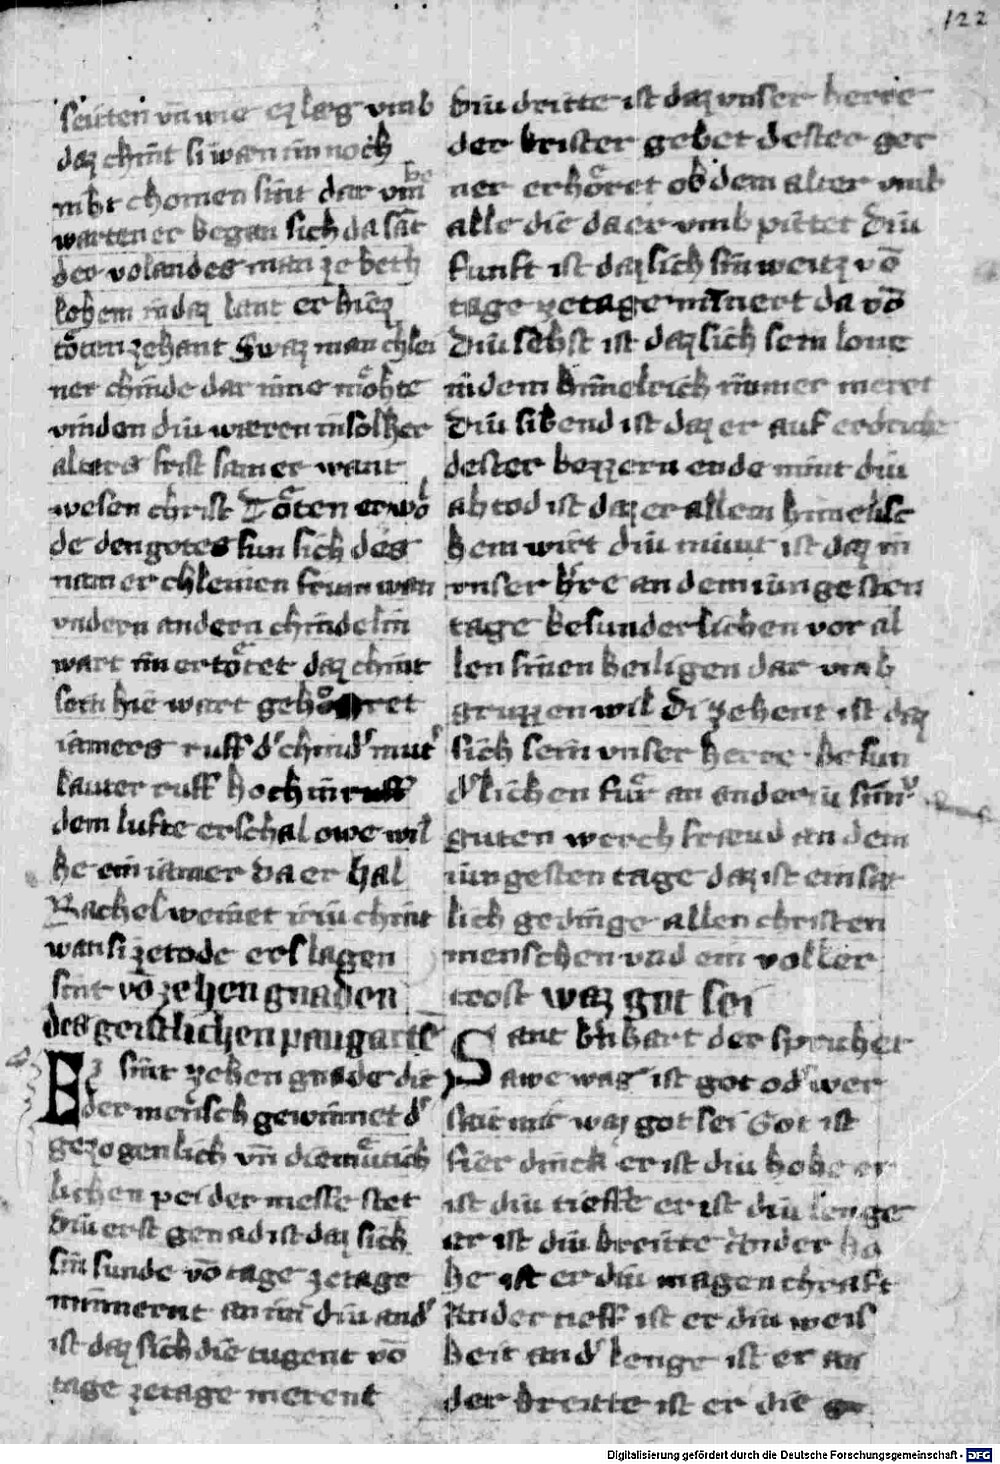 122
seiten vn̄ wie ez lag vmb
daz chint si warn im noch
niht chomen sint dar vm̄ be
warten er began sich da sāt
der volandes man ze beth
lehem in daz lant er hiez
toͤten zehant Swaz man chlei
ner chinde dar inne moͤhte
vinden diu waren in solher
alters frist sam er want
wesen christ Toͤten er wol
de den gotes sun sich des
nam er chleinen frum wan
vndern andern chindelin
wart im ertoͤtet daz chint
sein hie wart gehoͤret
iamers ruff dˢ chindˢ mutˢ
lauter ruff hoch in
dem lufte erschal owe wil
he ein iamer da er hal
Rachel weinet iriu chint
wan si ze tode erslagen
sint vō zehen gnaden
des geistlichen paugartē
Ez sint zehen gnade die
der mensch gewinnet dˢ
gezogenlich vn̄ diemuͤtich
lichen pei der messe stet
Diu erst genad ist daz sich
sin sunde vō tage ze tage
minnernt an im diu andˢ
ist daz sich die tugent vō
tage ze tage merent
Diu dritte ist daz vnser herre
der krister gebet dester ger
ner erhoͤret ob dem alter vmb
alle die da er vmb pittet Diu
funft ist daz sich sin weitz vō
tage ze tage minert da vō
Diu sehst ist daz sich sein lone
in dem himelrich immer meret
Diu sibend ist daz er auf erdriche
dester bezzern ende nimt diu
ahtod ist daz er allem himelisc
hem wirt diu niunt ist daz in
vnser hˢre an dem iungesten
tage besunderlichen vor al
len sinen heiligen dar vmb
gruzzen wil Di zehent ist daz
sich sein vnser herre besun
dˢlichen fuͤr an anderiu siniu
guten werch fraeud an dem
iungesten tage daz ist ein sae
lich gedinge allen christen
menschen vnd ein voller
trost waz got sei
Sant bˢnhart der sprichet
awe waz ist got odˢ wer
sait mir waz got sei Got ist
fier dinck er ist diu hohe er
ist diu tieffe er ist diu lenge
er ist diu breitte An der ho
he ist er diu magenchraft
An der tieff ist er diu weis
heit an dˢ lenge ist er an
der breitte ist er die
Digitalisierung gefördert durch die Deutsche Forschungsgemeinschaft - DFG